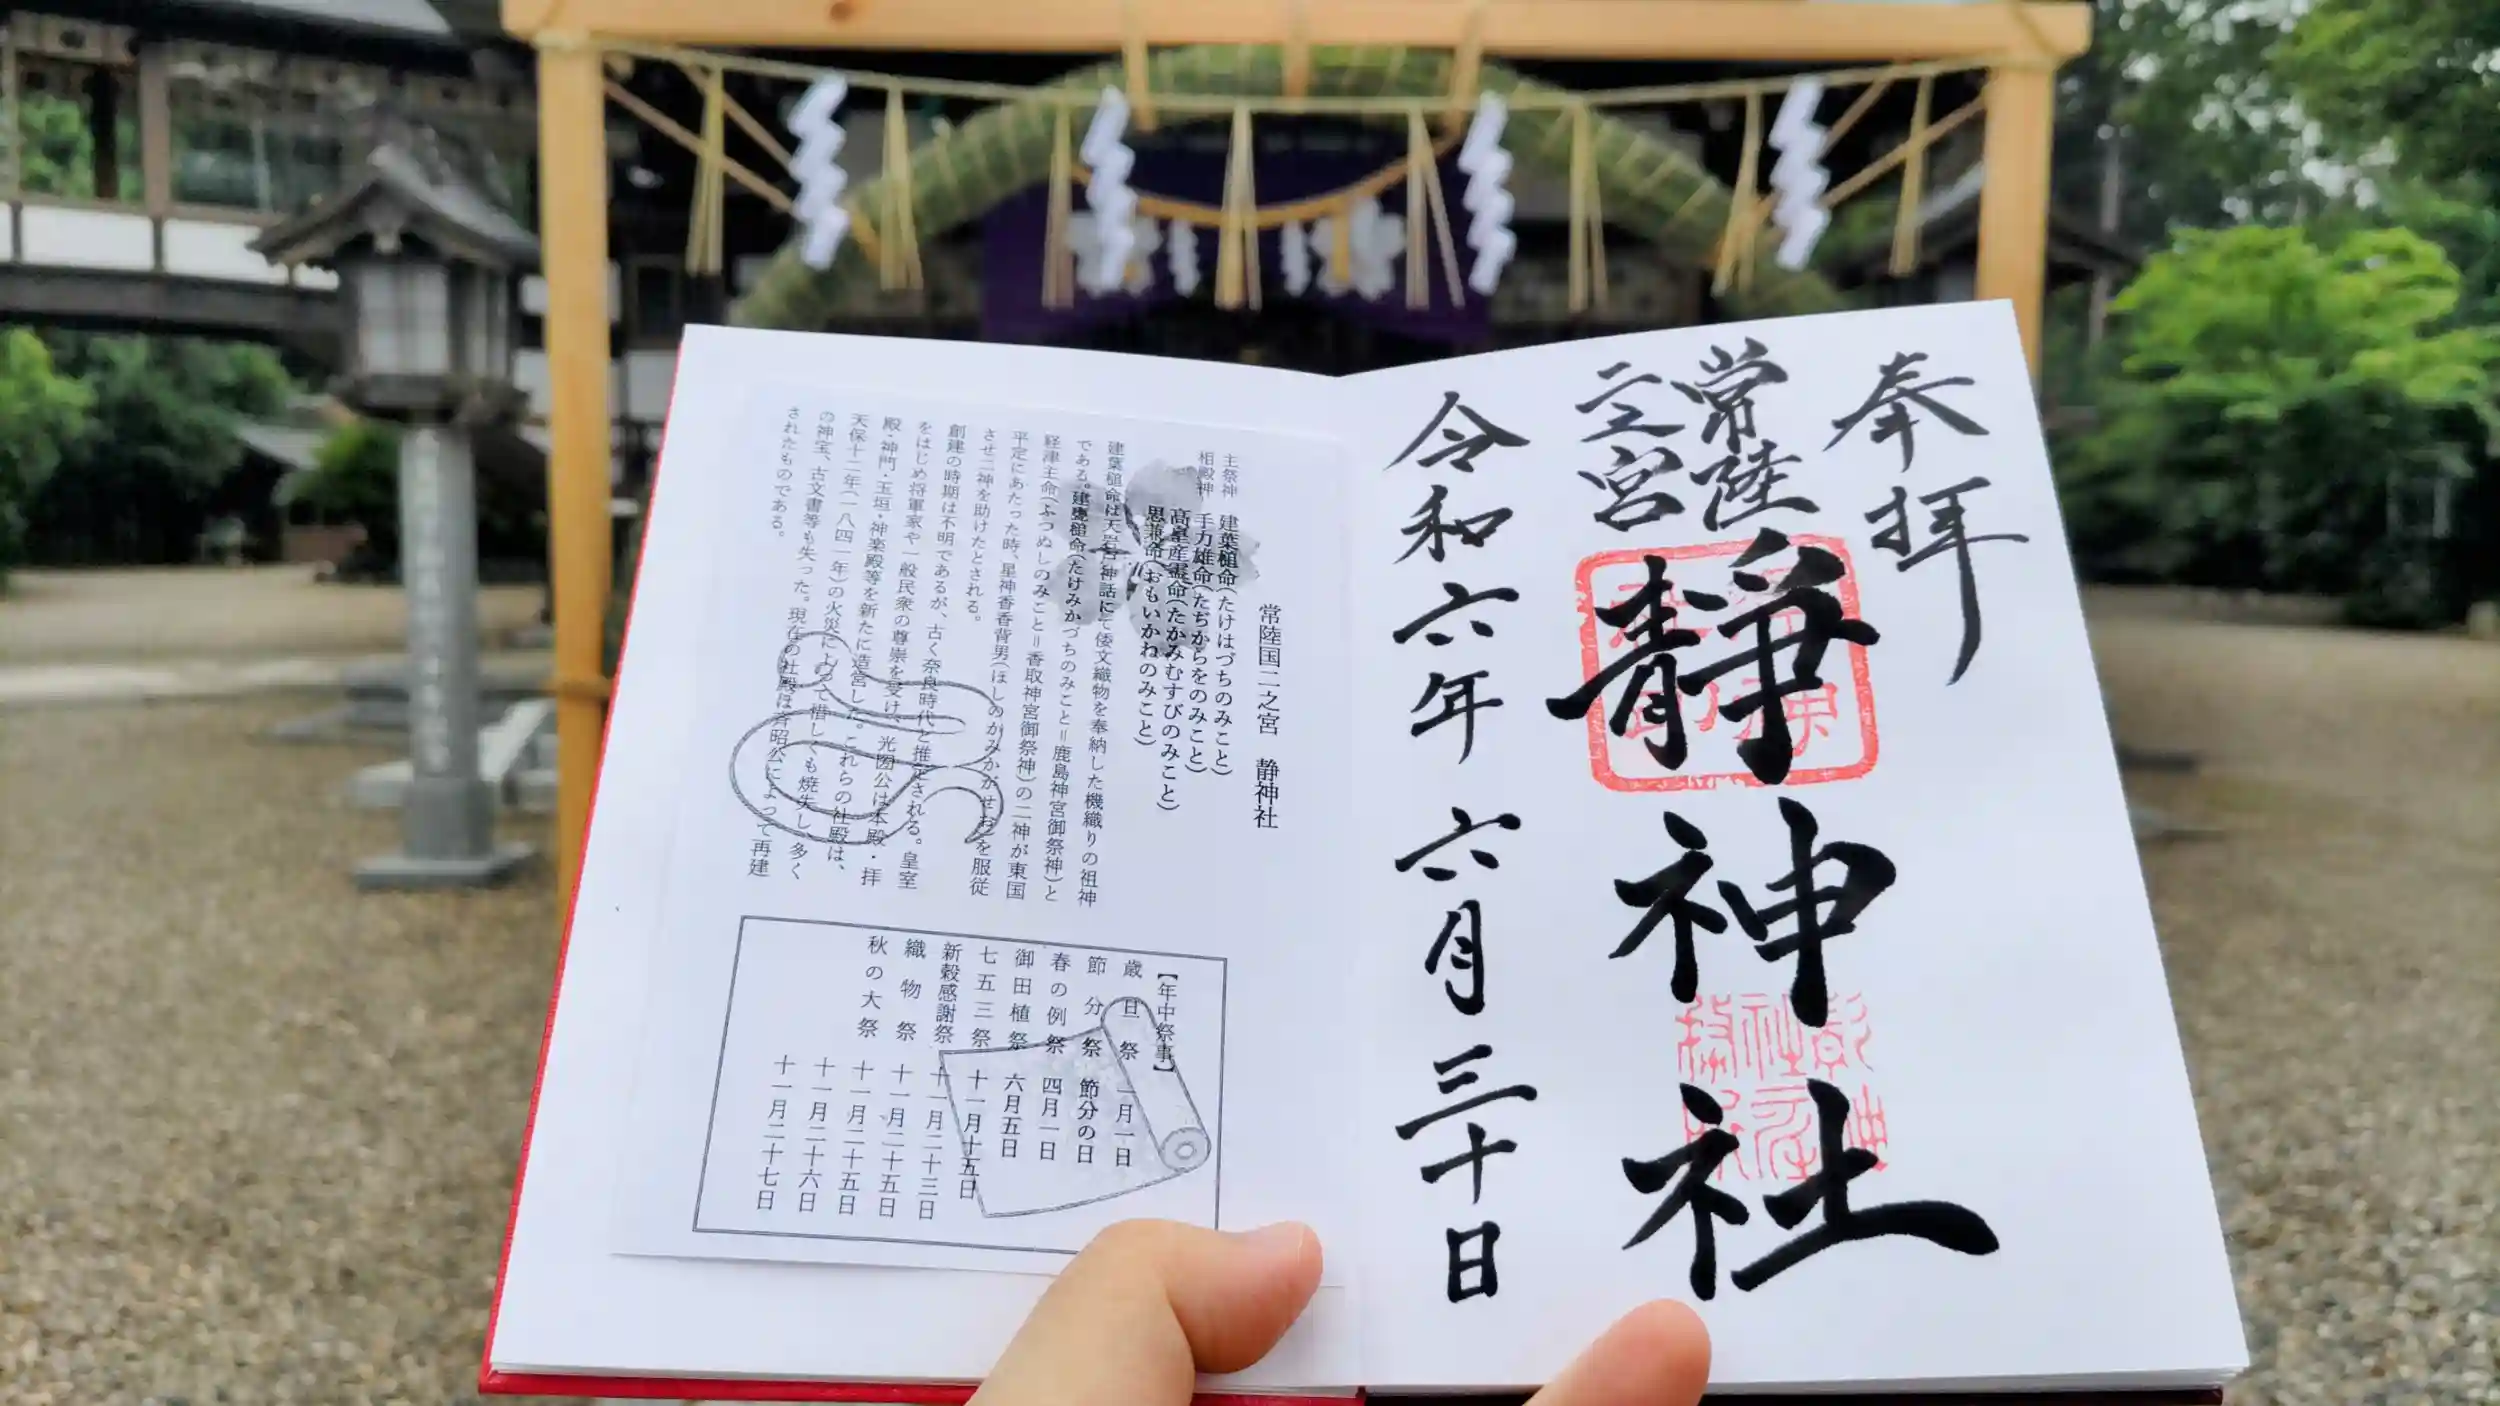 奉拝
常陸
二宮
静神社
令和六年 六月 三十日
常陸国二之宮 静神社
主祭神 建葉槌命(たけはづちのみこと)
相殿神 手力雄命(たぢからをのみこと)
高皇産霊命(たかみむすびのみこと)
思兼命(おもいかねのみこと)
建葉槌命は天岩戸神話にて倭文織物を奉納した機織りの祖神
である。建甕槌命(たけみかづちのみこと=鹿島神宮御祭神)と
経津主命(ふつぬしのみこと=香取神宮御祭神)の二神が東国
平定にあたった時、星神香香背男(ほしのかみかがせお)を服従
させ二神を助けたとされる。
創建の時期は不明であるが、古く奈良時代と推定される。皇室
をはじめ将軍家や一般民衆の尊崇を受け、光圀公は本殿・拝
殿・神門・玉垣・神楽殿等を新たに造営した。これらの社殿は、
天保十二年(一八四一年)の火災によって惜しくも焼失し、多く
の神宝、古文書等も失った。現在の社殿は斉昭公によって再建
されたものである。
【年中祭事】
歳旦祭 一月一日
節分祭 節分の日
春の例祭 四月一日
御田植祭 六月五日
七五三祭 十一月十五日
新穀感謝祭 十一月二十三日
織物祭 十一月二十五日
秋の大祭 十一月二十五日
十一月二十六日
十一月二十七日